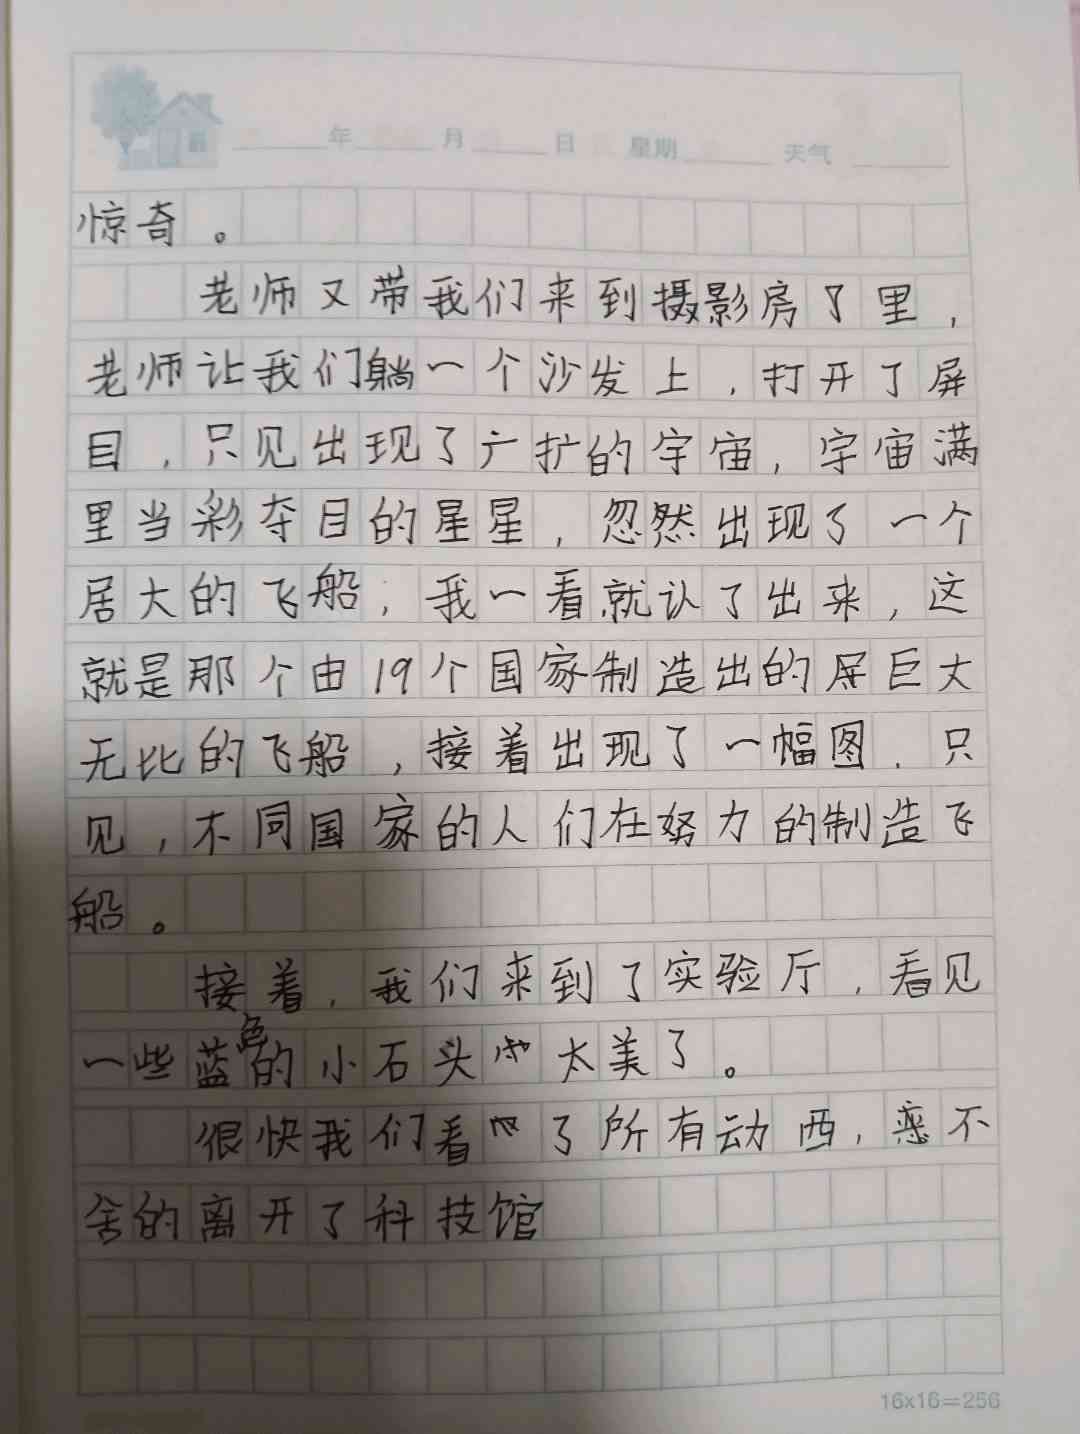 年 月 日 星期 天气
惊奇。
老师又带我们来到摄影房了里，
老师让我们躺一个沙发上，打开了屏
目，只见出现了广扩的宇宙，宇宙满
里当彩夺目的星星，忽然出现了一个
居大的飞船，我一看就认了出来，这
就是那个由19个国家制造出的屏巨大
无比的飞船，接着出现了一幅图，只
见，不同国家的人们在努力的制造飞
船。
接着，我们来到了实验厅，看见
一些蓝色的小石头 太美了。
很快我们看 了所有动西，恋不
舍的离开了科技馆
16x16=256